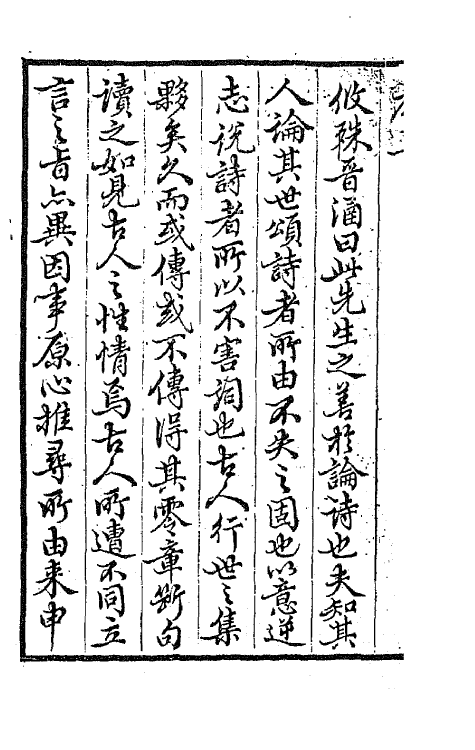 攸殊晉涵曰此先生之善於論詩也夫知其
人論其世頌詩者所由不失之固也以意逆
志說詩者所以不害詞也古人行世之集
夥矣久而或傳或不傳得其零章斷句
讀之如見古人之性情焉古人所遭不同立
言之旨亦異因事原心推尋所由来申